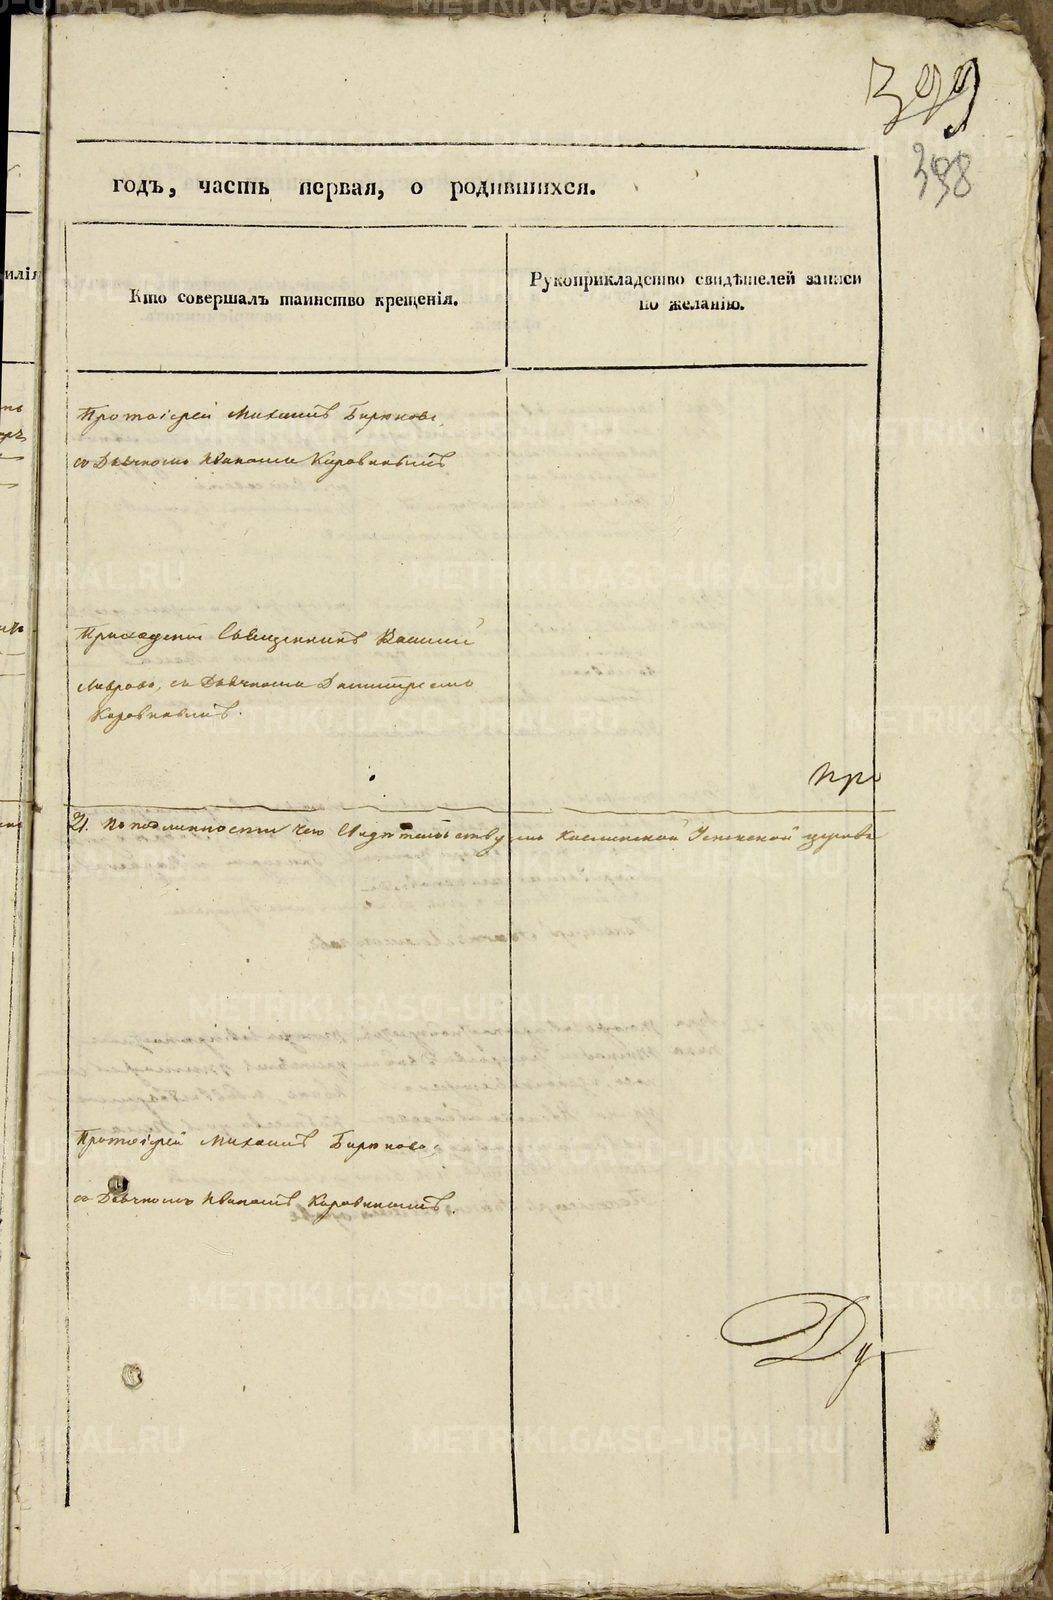 399
398
годъ, часть первая, о родившихся.
Кто совершалъ таинство крещенія.
Рукоприкладство свидѣтелей записи
по желанію.
Протоіерей Михаилъ Бирюковъ,
съ Дьячкомъ Иваномъ Коровинымъ
Приходскій Священникъ Василій
Лавровъ, съ Дьячкомъ Димитріемъ
Коровинымъ.
при
21. въ подлинности чего Свидѣтельствуемъ Каслинской Успенской церкви
Протоіерей Михаилъ Бирюковъ,
съ Дьячкомъ Иваномъ Коровинымъ.
Ду
METRIKI.GASO-URAL.RU